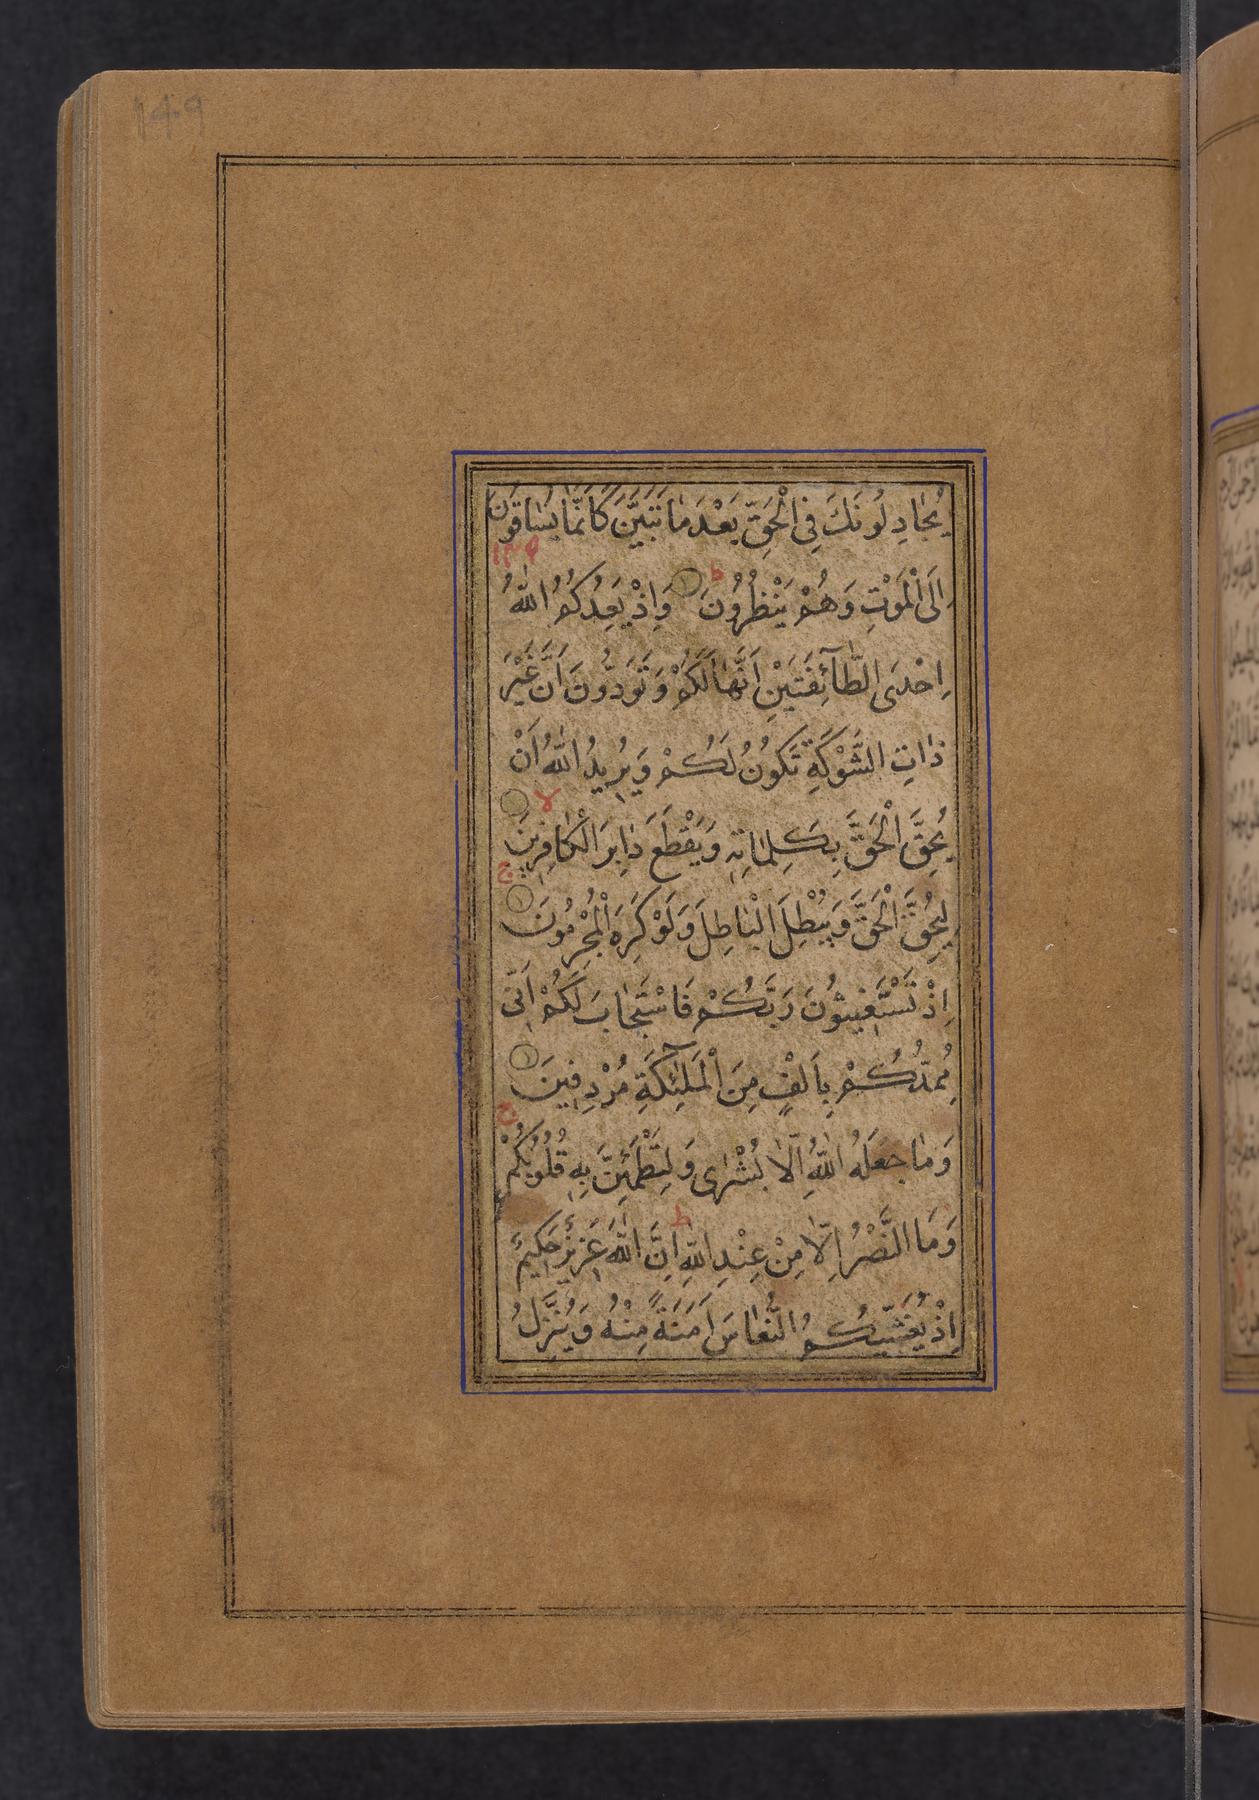 149
يُجَادِلُونَكَ فِي الْحَقِّ بَعْدَ مَا تَبَيَّنَ كَاَنَّمَا يُسَاقُونَ
اِلَى الْمَوْتِ وَهُمْ يَنْظُرُونَ ط وَاِذْ يَعِدُكُمُ اللّٰهُ
اِحْدَى الطَّآئِفَتَيْنِ اَنَّهَا لَكُمْ وَتَوَدُّونَ اَنَّ غَيْرَ
ذَاتِ الشَّوْكَةِ تَكُونُ لَكُمْ وَيُرِيدُ اللّٰهُ اَنْ
يُحِقَّ الْحَقَّ بِكَلِمَاتِهِ وَيَقْطَعَ دَابِرَ الْكَافِرِينَ لا
لِيُحِقَّ الْحَقَّ وَيُبْطِلَ الْبَاطِلَ وَلَوْ كَرِهَ الْمُجْرِمُونَ ج
اِذْ تَسْتَغِيثُونَ رَبَّكُمْ فَاسْتَجَابَ لَكُمْ اَنِّي
مُمِدُّكُمْ بِاَلْفٍ مِنَ الْمَلٰٓئِكَةِ مُرْدِفِينَ
وَمَا جَعَلَهُ اللّٰهُ اِلَّا بُشْرٰى وَلِتَطْمَئِنَّ بِهِ قُلُوبُكُمْ ج
وَمَا النَّصْرُ اِلَّا مِنْ عِنْدِ اللّٰهِ ط اِنَّ اللّٰهَ عَزِيزٌ حَكِيمٌ
اِذْ يُغَشِّيكُمُ النُّعَاسَ اَمَنَةً مِنْهُ وَيُنَزِّلُ